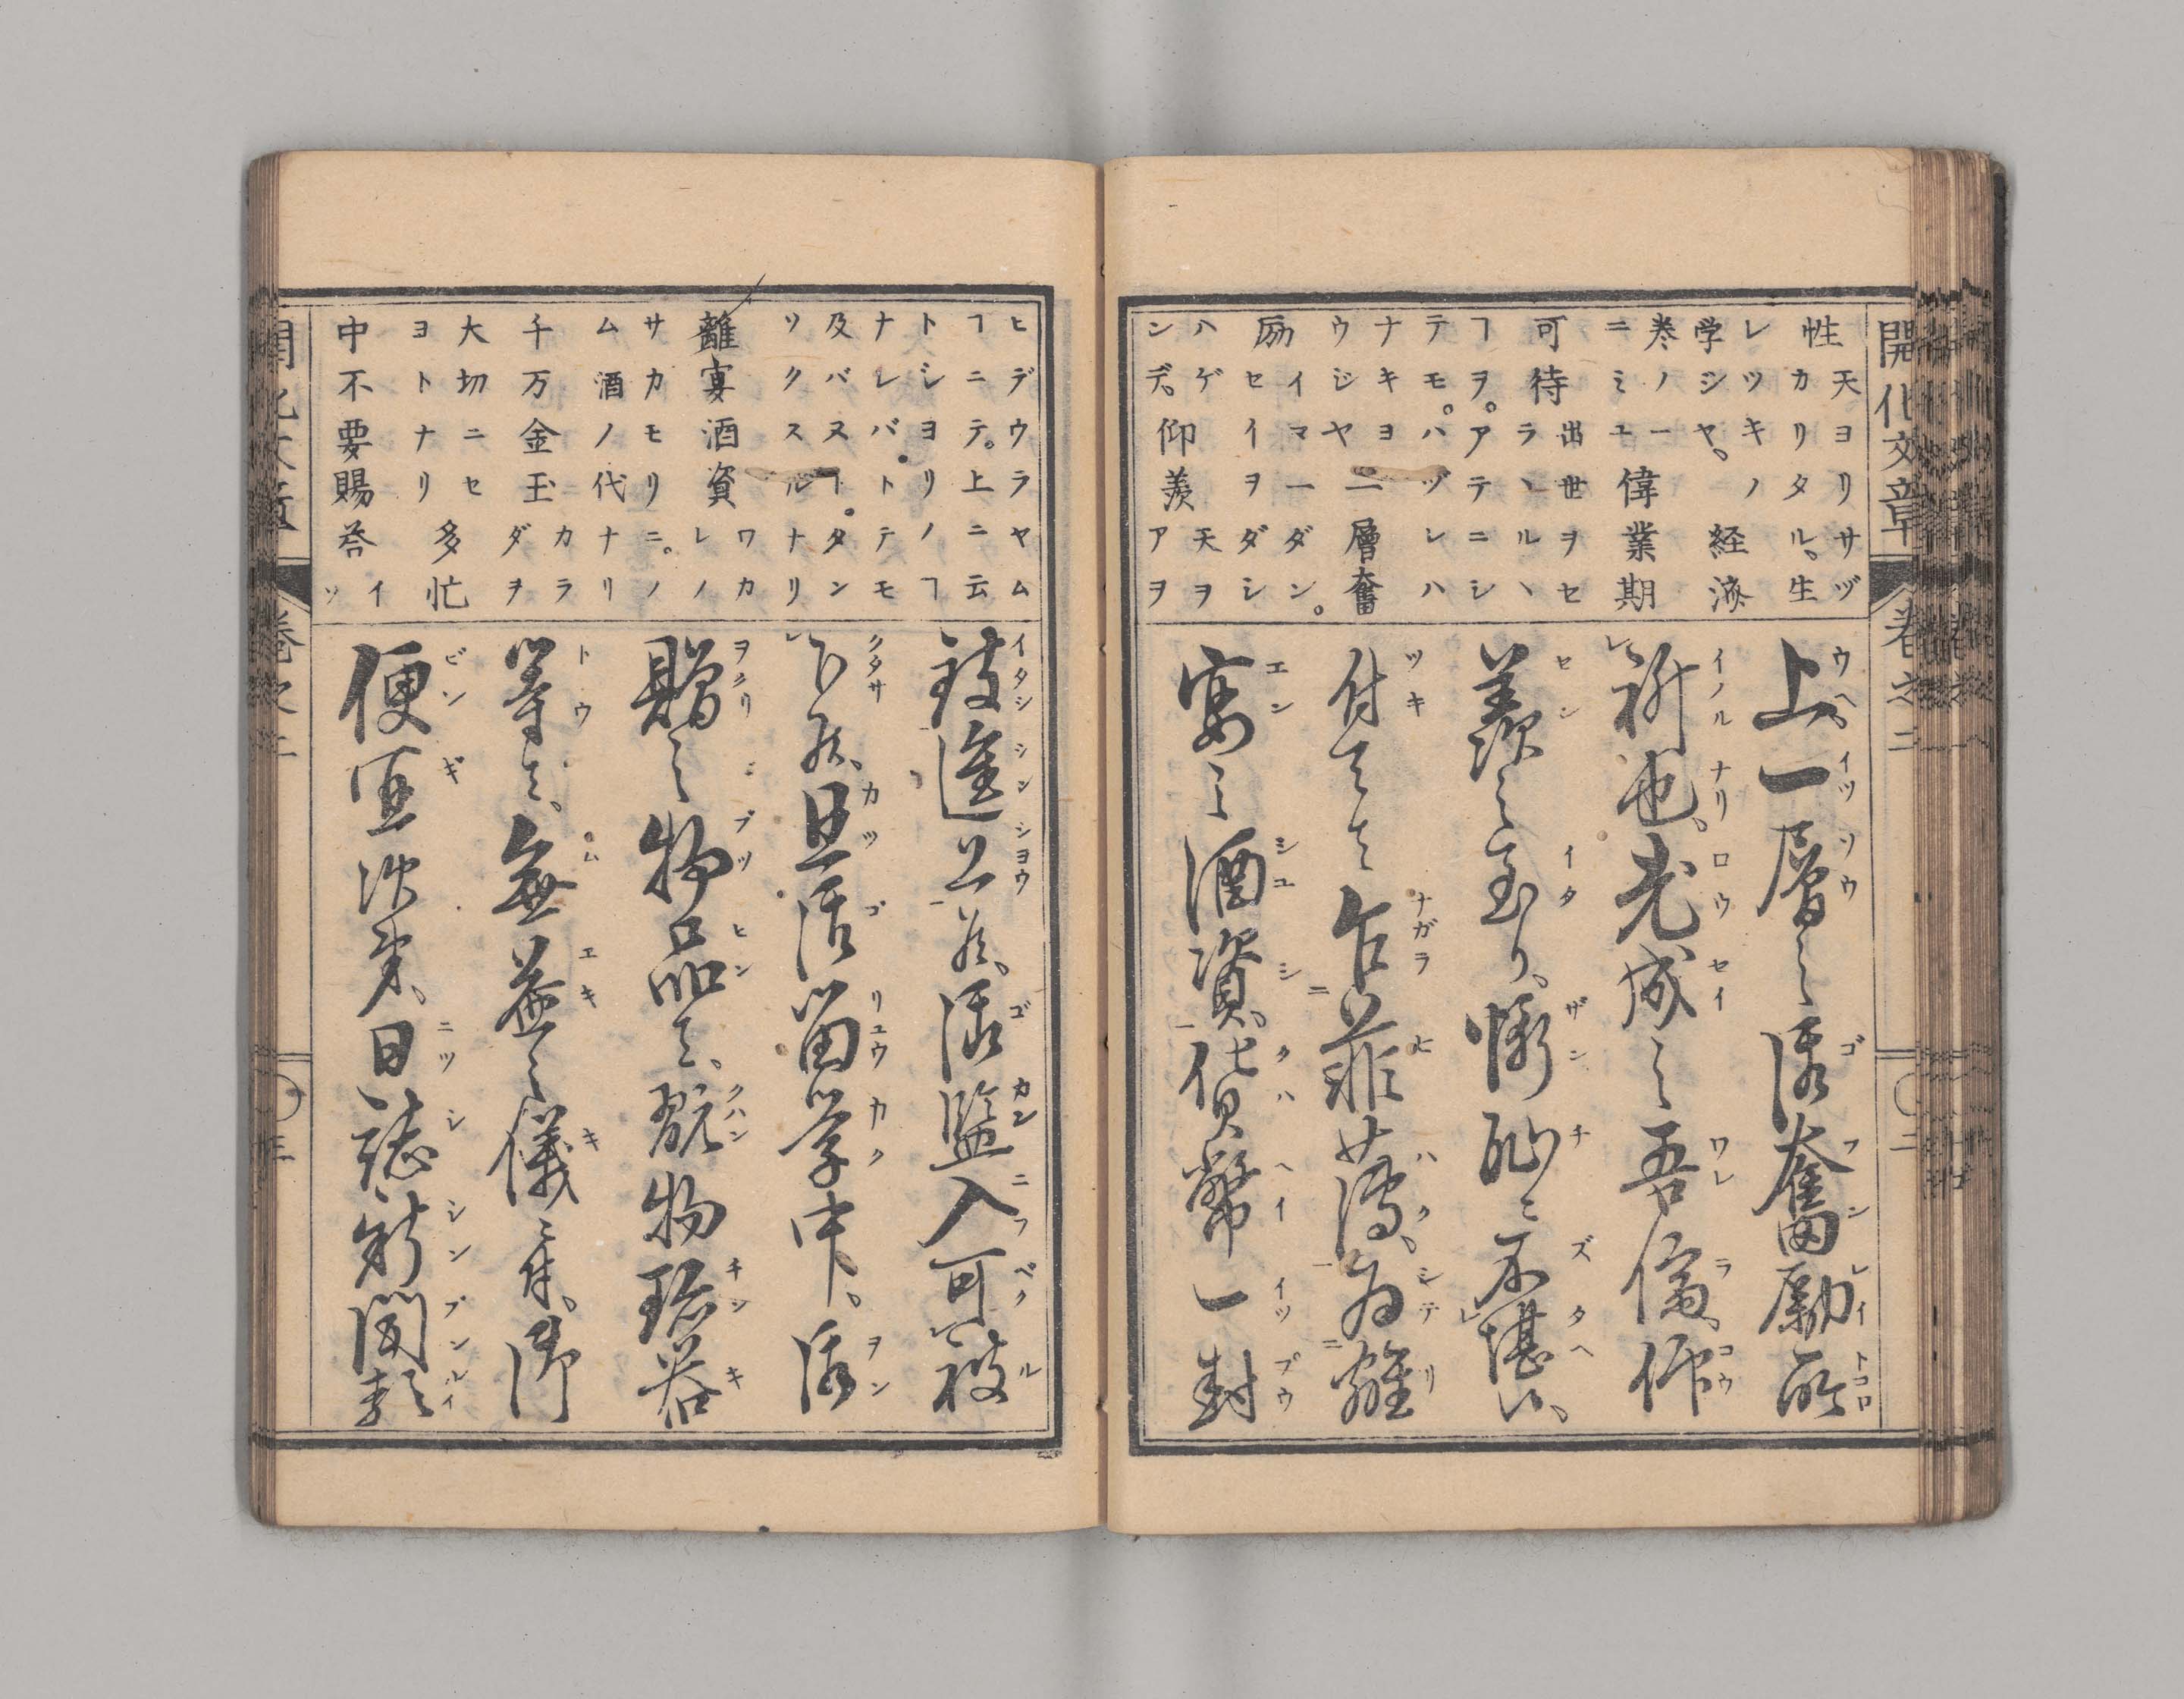 開化文章 巻之二 〇二
性 天ヨリサヅ
カリタル、生
レツキノ 経済
学シヤ、
巻ノ一
ニミユ 偉業期
可待 出世ヲセ
ラルヽ
ヿヲ。アテニシ
テモ。ハヅレハ
ナキヨ
ウジヤ 一層奮
励 イマ一ダン。
セイヲダシ
ハゲ
ンデ、仰羨 天ヲ
アヲ
上一層之御奮励所
祈也、老成之吾儕、仰
羨之至り、慚耻ニ不堪候、
付而者乍菲薄、為離
宴之酒資、貨幣一封
ヒデウラヤム
ヿニテ。上ニ云
トシヨリノヿ
ナレバ、トテモ
及バヌヿ。タン
ソクスルナリ
離宴酒資 ワカ
レノ
サカモリニ。ノ
ム酒ノ代ナリ
千万金玉 カラ
ダヲ
大切ニセ
ヨトナリ 多忙
中不要賜答 イ
ツ
致進上候、御監入可被
下候、且御留学中、御
贈之物品者、翫物珍器
等者、無益之儀ニ付、御
便宜次第、日誌新聞類